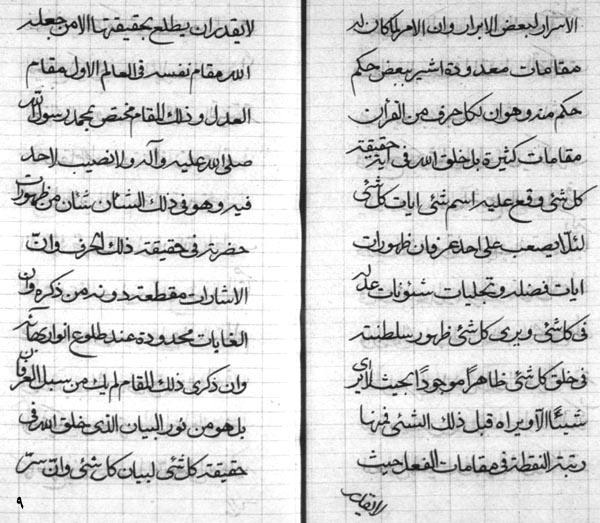 الاسرار لبعض الابرار وان الامر لما كان له
مقامات معدودة اشير ببعض حكم
حكم منه وهو ان لكل حرف من القرآن
مقامات كثيرة بل خلق الله فى اية حقيقة
كل شئ وقع عليه اسم شئ ايات كل شئ
لئلا يصعب على احد عرفان ظهورات
ايات فضله وتجليات شئونات عدله
فى كل شئ ويرى كل شئ ظهور سلطنته
فى خلق كل شئ ظاهراً موجوداً بحيث لا يرى
شيئاً الا ويراه قبل ذلك الشئ فمنها
رتبة النقطة فى مقامات الفعل حيث
لا يقدر
لا يقدر ان يطلع بحقيقتها الا من جعله
الله مقام نفسه فى العالم الاول مقام
العدل وذلك المقام مختص بمحمد رسول الله
صلى الله عليه وآله ولا نصيب لاحد
فيه وهو فى ذلك الشان شان من ظهورات
حضرته فى حقيقة ذلك الحرف وانّ
الاشارات مقطعة دونه من ذكره وان
الغايات محدودة عند طلوع انوار بهائه
وان ذكرى ذلك المقام لم يك من سبيل العرفان
بل هو من نور البيان الذى خلق الله فى
حقيقة كل شئ لبيان كل شئ وانّ سرّ
٩